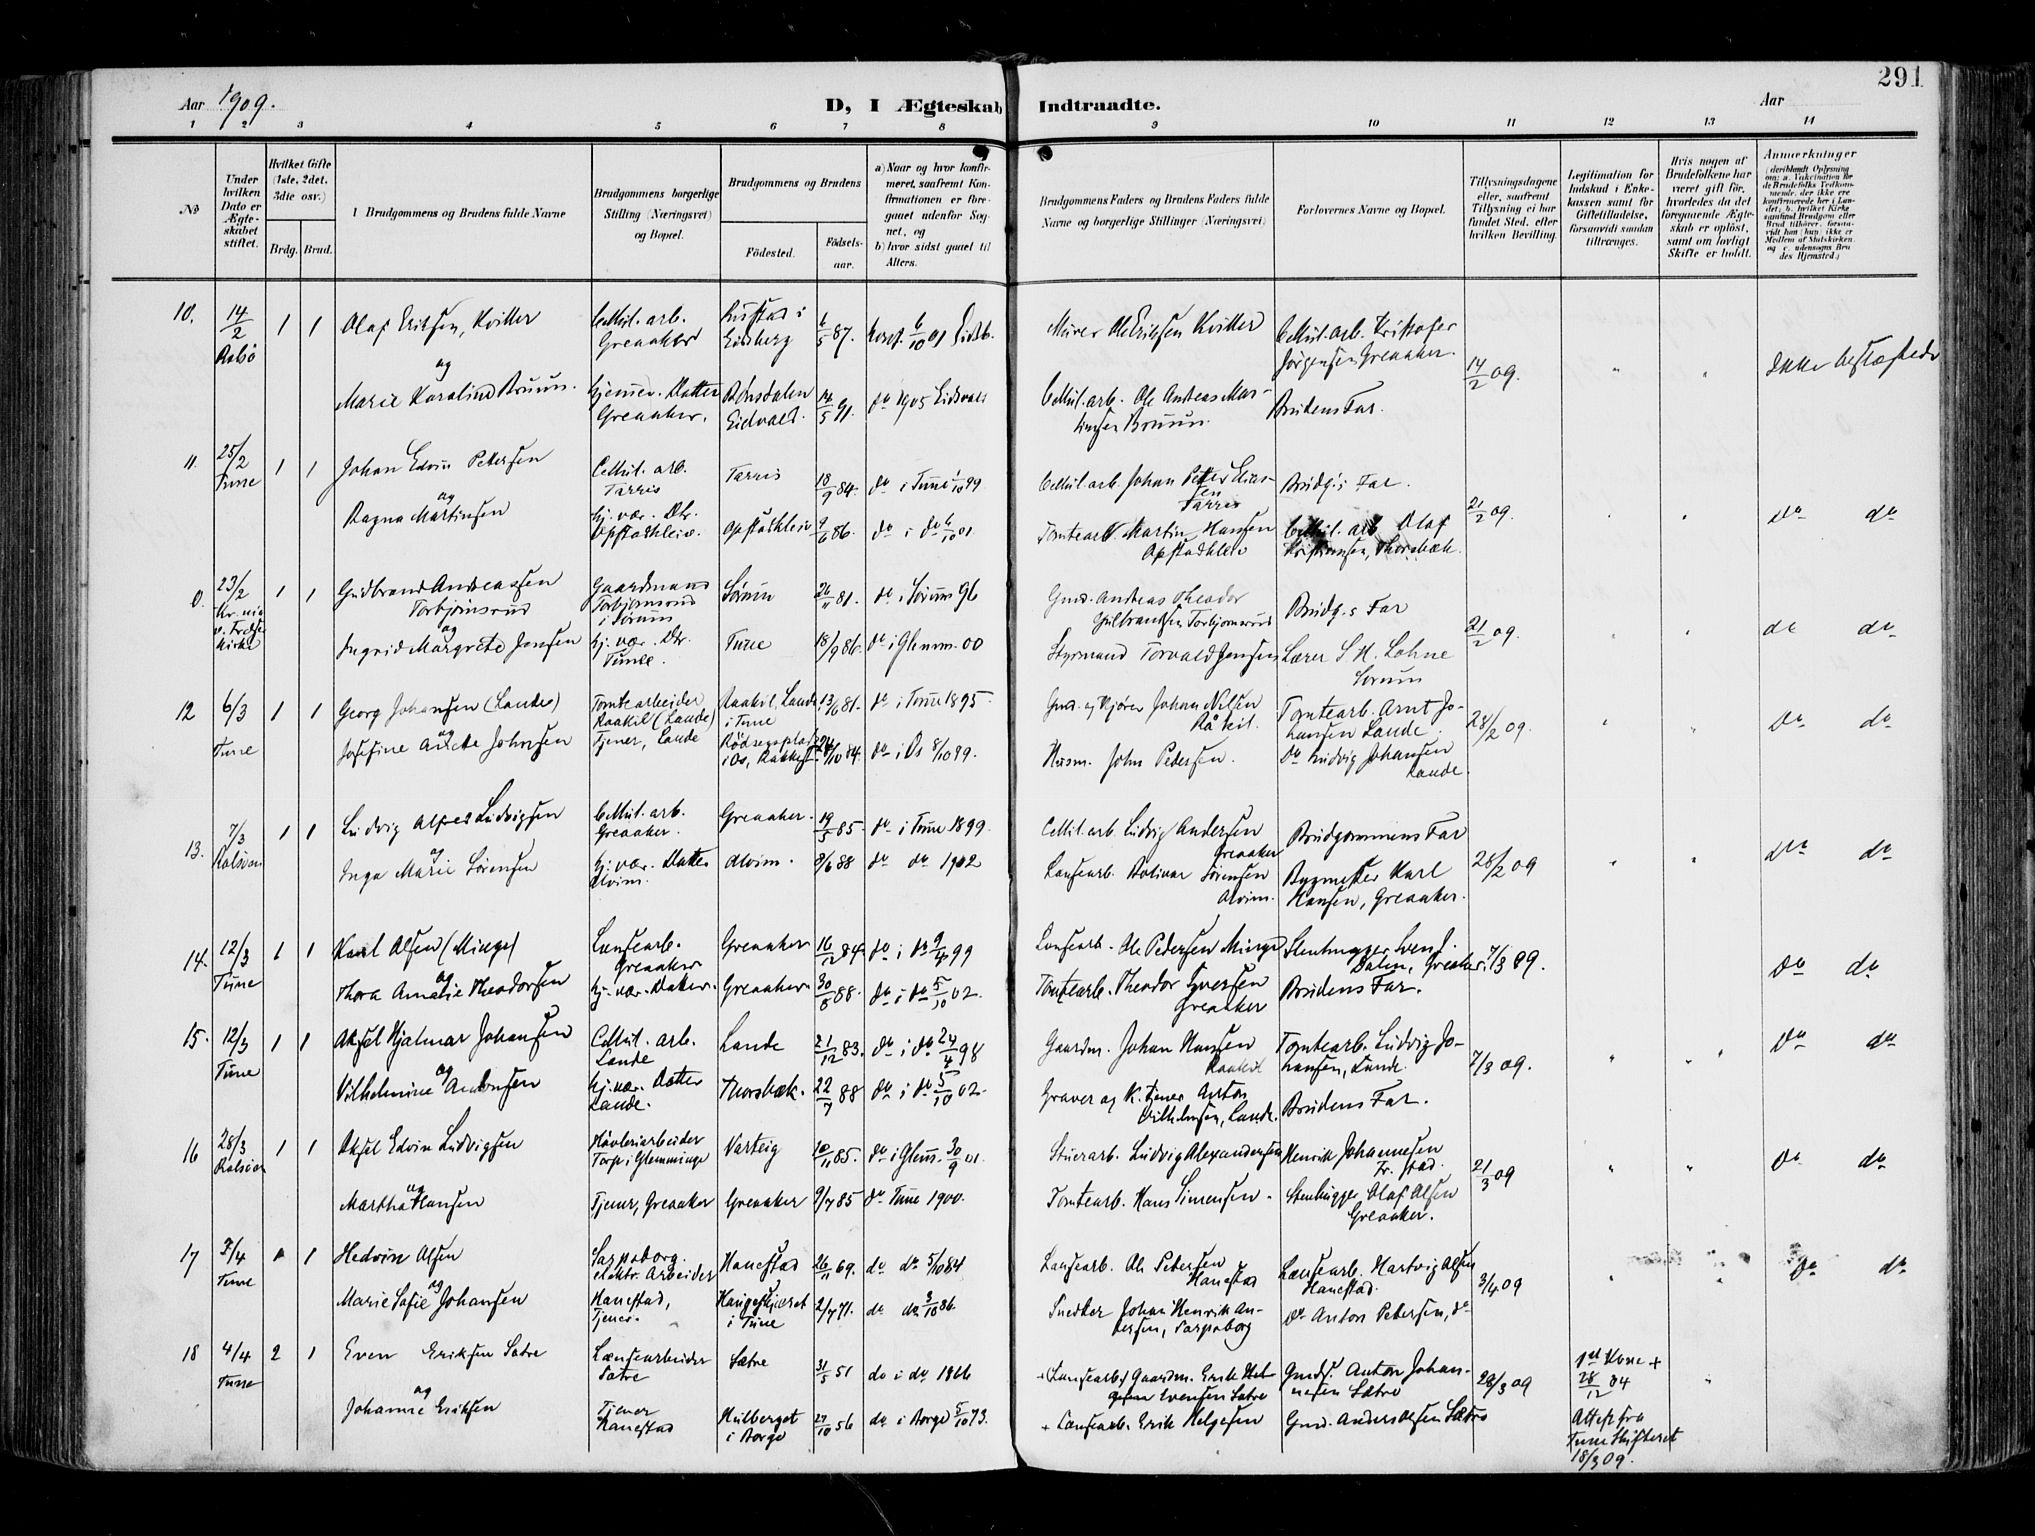 291
Aar 1909.
D, I Ægteskab Indtraadte.
Aar
1 2 3 4 5 6 7 8 9 10 11 12 13 14
No
Under hvilken Dato er Ægteskabet stiftet.
Hvilket Gifte (1ste, 2det, 3die osv.)
Brdg. Brud.
1 Brudgommens og Brudens fulde Navne
Brudgommens borgerlige Stilling (Næringsvei) og Bopæl.
Brudgommens og Brudens
Födested.
Födsels-aar.
a) Naar og hvor konfirmeret, saafremt Konfirmationen er foregaaet udenfor Sognet, og
b) hvor sidst gaaet til Alters.
Brudgommens Faders og Brudens Faders fulde Navne og borgerlige Stillinger (Næringsvei)
Forlovernes Navne og Bopæl.
Tillysningsdagene eller, saafremt Tillysning ei har fundet Sted, efter hvilken Bevilling.
Legitimation for Indskud i Enkekassen samt for Giftetilladelse, forsaavidt saadan tiltrænges.
Hvis nogen af Brudefolkene har været gift för, hvorledes da det foregaaende Ægteskab er oplöst, samt om lovligt Skifte er holdt.
Anmerkninger
10. 14/2 1 1 Olaf Eriksen, Kviller Cellul. arb. Greaaker Eidsberg 6/5 87. Konf. 6/10 01 Eidsb. Murer Ole Eriksen Kviller Cellul. arb. Kristofer Jörgensen Greaaker. 14/2 09. Ikke
og
Marie Karoline Bruun. Hjemmev. Datter Greaaker. Eidsvold. 14/5 91 do 1905 Eidsvold Cellul. arb. Ole Andreas Martinsen Bruun. Brudens Far.
11. 25/2 Tune 1 1 Johan Edvin Petersen Cellul. arb. Tarris Tarris 18/9 84. do i Tune 1/10 99 Cellul. arb. Johan Petter Tarris Brudg.s Far. 21/2 09. do do
og
Ragna Martinsen Hj. vær. Dtr. Opstadkleiv. Opstadkleiv 9/6 86. do i do 6/10 01 Tomtearb. Martin Hansen Opstadkleiv Cellul. arb. Olaf Kristiansen, Thorsbæk.
0. 23/2 1 1 Gudbrand Andreassen Torbjörnsrud Gaardmand Torbjörnsrud i Sörum Sörum 26/11 81. do i Sörum 96 Gmd. Andreas Theodor Gulbrandsen Torbjörnsrud Brudg.s Far 21/2 09. do do
og
Ingrid Margrete Jensen Hj. vær. Dtr. Tune. Tune 18/9 86. do i Glemm. 00 Styrmand Torvald Jensen Lærer S. H. Lohne Sörum
12 6/3 Tune 1 1 Georg Johansen (Lande) Tomtearbeider Raakil (Lande) Raakil, Lande i Tune 13/6 81. do i Tune 1895. Gmd. og Johan Nilsen Råkil. Tomtearb. Arnt Johansen Lande. 28/2 09. do do
og
Josefine Johnsen Tjener, Lande 84. do i Os 8/10 99. Husm. John Pedersen. do Ludvig Johansen Lande.
13. 7/3 1 1 Ludvig Alfred Ludvigsen Cellul. arb. Greaaker. Greaaker. 19/5 85. do i Tune 1899. Cellul. arb. Ludvig Andersen Greaaker Brudgommens Far 28/2 09 do do
og
Inga Marie Sörensen Hj. vær. Datter Alvim. Alvim. 8/6 88 do do 1902 Lænsearb. Bolivar Sörensen Alvim. Bygmester Karl Hansen, Greaaker.
14. 12/3 Tune 1 1 Karl Olsen (Minge) Lænsearb. Greaaker Greaaker 16/12 84. do i do 9/4 99 Lænsearb. Ole Pedersen Minge Stenhugger Svend Dalen, Greaaker. 7/3 09. do do
og
Thora Amalie Theodorsen Hj. vær. Datter. Greaaker. 30/8 88. do i do 5/10 02. Tomtearb. Theodor Iversen Greaaker Brudens Far.
15. 12/3 Tune 1 1 Aksel Hjalmar Johansen Cellul. arb. Lande Lande 21/12 83. do i do 24/4 98 Gaardm. Johan Hansen Raakil Tomtearb. Ludvig Johansen, Lande. 7/3 09. do do
og
Vilhelmine Antonsen Hj. vær. Datter Lande. Thorsbæk. 22/7 88 do i do 5/10 02. Graver og K. tjener Anton Vilhelmsen, Lande. Brudens Far.
16 28/3 1 1 Aksel Edvin Ludvigsen Hövleriarbeider Torp i Glemminge Varteig 10/11 85. do i Glem. 30/9 01. Stuerarb. Ludvig Alexandersen Henrik Johannesen Fr. stad. 21/3 09 do do
og
Martha Hansen Tjener, Greaaker Greaaker 9/7 85 do Tune 1900. Tomtearb. Hans Simensen. Stenhugger Olaf Olsen Greaaker.
17 /4 Tune 1 Hedvin Olsen Sarpsborg. elektr. Arbeider Hanestad 26/11 69. do do 5/10 84 Lænsearb. Ole Petersen Hanestad Lænsearb. Hartvig Olsen Hanestad. 3/4 09 do do
og
Marie Sofie Johansen Hanestad, Tjener. Haugeskjæret i Tune 2/7 71. do do 3/10 86. Snedker Johan Henrik Andersen, Sarpsborg do Anton Petersen, do
18 4/4 Tune 2 1 Even Eriksen Sætre Lænsearbeider Sætre Sætre 31/5 51 do i do 1866 + Gaardm. Erik Sætre Gmds. Anton Johannesen Sætre 28/3 09 1st Kone + 28/12 04
og
Johanne Eriksen Tjener Hanestad Hulberget i Borge 27/10 56 do i Borge 5/10 73. + Lænsearb. Erik Helgesen Gmd. Anders Olsen Sætre Attest fra Tune Skifteret 18/3 09.